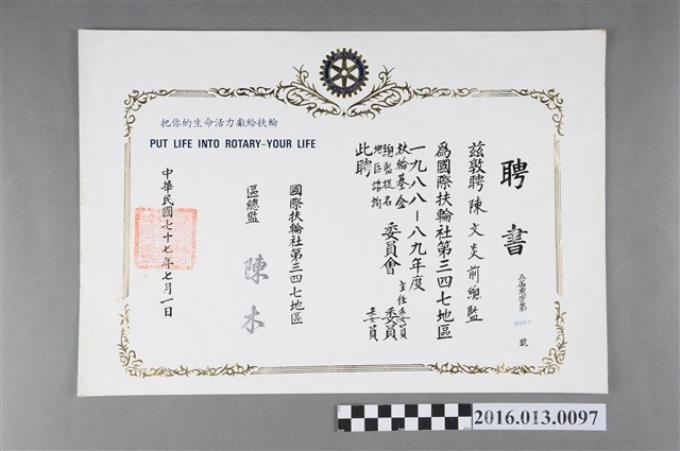 把你的生命活力獻給扶輪
PUT LIFE INTO ROTARY-YOUR LIFE
聘書
號
茲敦聘陳文炎前總監
為國際扶輪社第三四七地區
一九八八—八九年度
扶輪基金
總監提名
地區諮詢
委員會
主任委員
委員
委員
此聘
國際扶輪社第三四七地區
區總監
陳木
中華民國七十七年七月一日
2016.013.0097